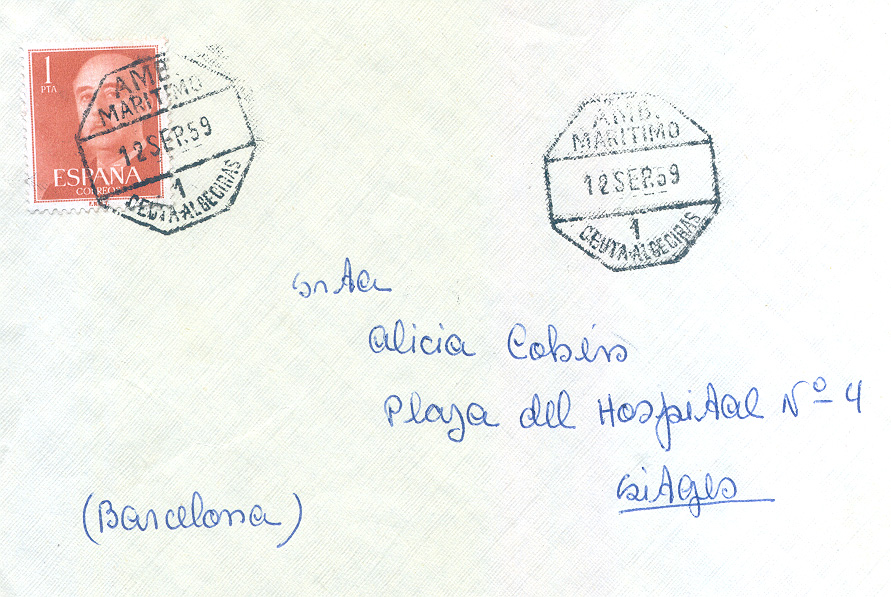 1
PTA
ESPAÑA
CORREOS
AMB.
MARITIMO
12 SEP. 59
1
CEUTA-ALGECIRAS
AMB.
MARITIMO
12 SEP. 59
1
CEUTA-ALGECIRAS
Srta
Alicia
Plaza del Hospital Nº 4
Sitges
(Barcelona)